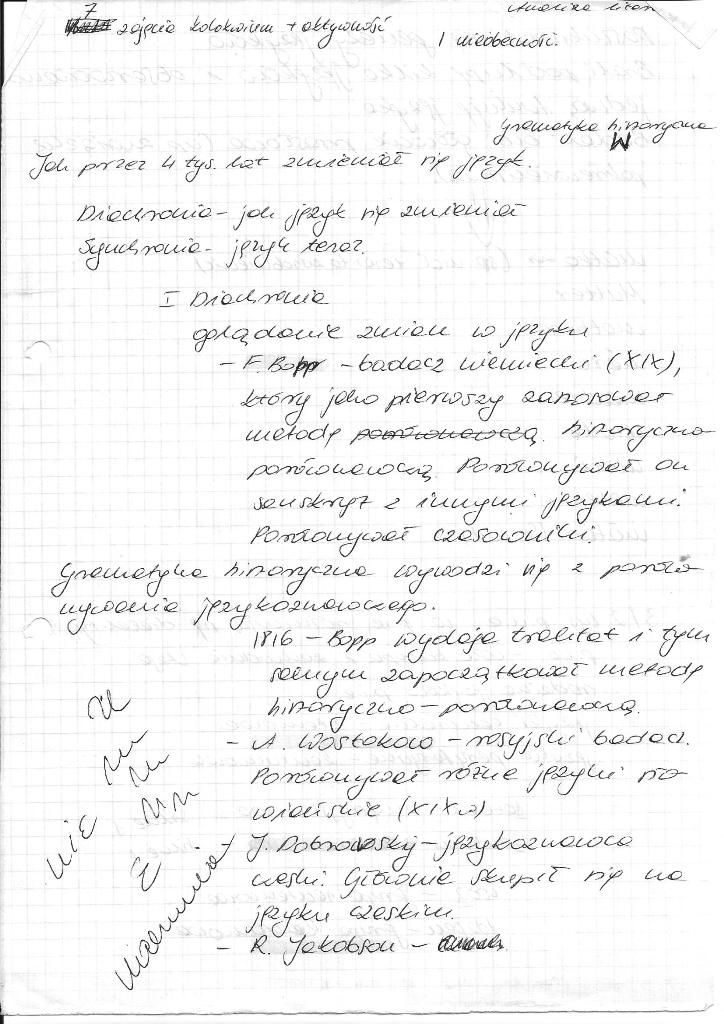 7
zajęcia kolokwium + aktywność
1 nieobecność.
Gramatyka historyczna
W
Jak przez 4 tys. lat zmieniał się język.
Diachronia - jak język się zmieniał
Synchronia - język teraz.
I Diachronia
oglądanie zmian w języku
- F. Bopp - badacz niemiecki (XIX),
który jako pierwszy zastosował
metodę porównawczą historyczno
porównawczą. Porównywał on
sanskryt z innymi językami.
Porównywał czasowniki.
Gramatyka historyczna wywodzi się z porów
nywania językoznawczego.
1816 - Bopp wydaje traktat i tym
samym zapoczątkował metodę
historyczno-porównawczą.
- A. Wostokow - rosyjski badacz.
Porównywał różne języki sło
wiańskie (XIXw)
- J. Dobrowskij - językoznawca
czeski. Głównie skupił się na
języku czeskim.
- R. Jakobson -